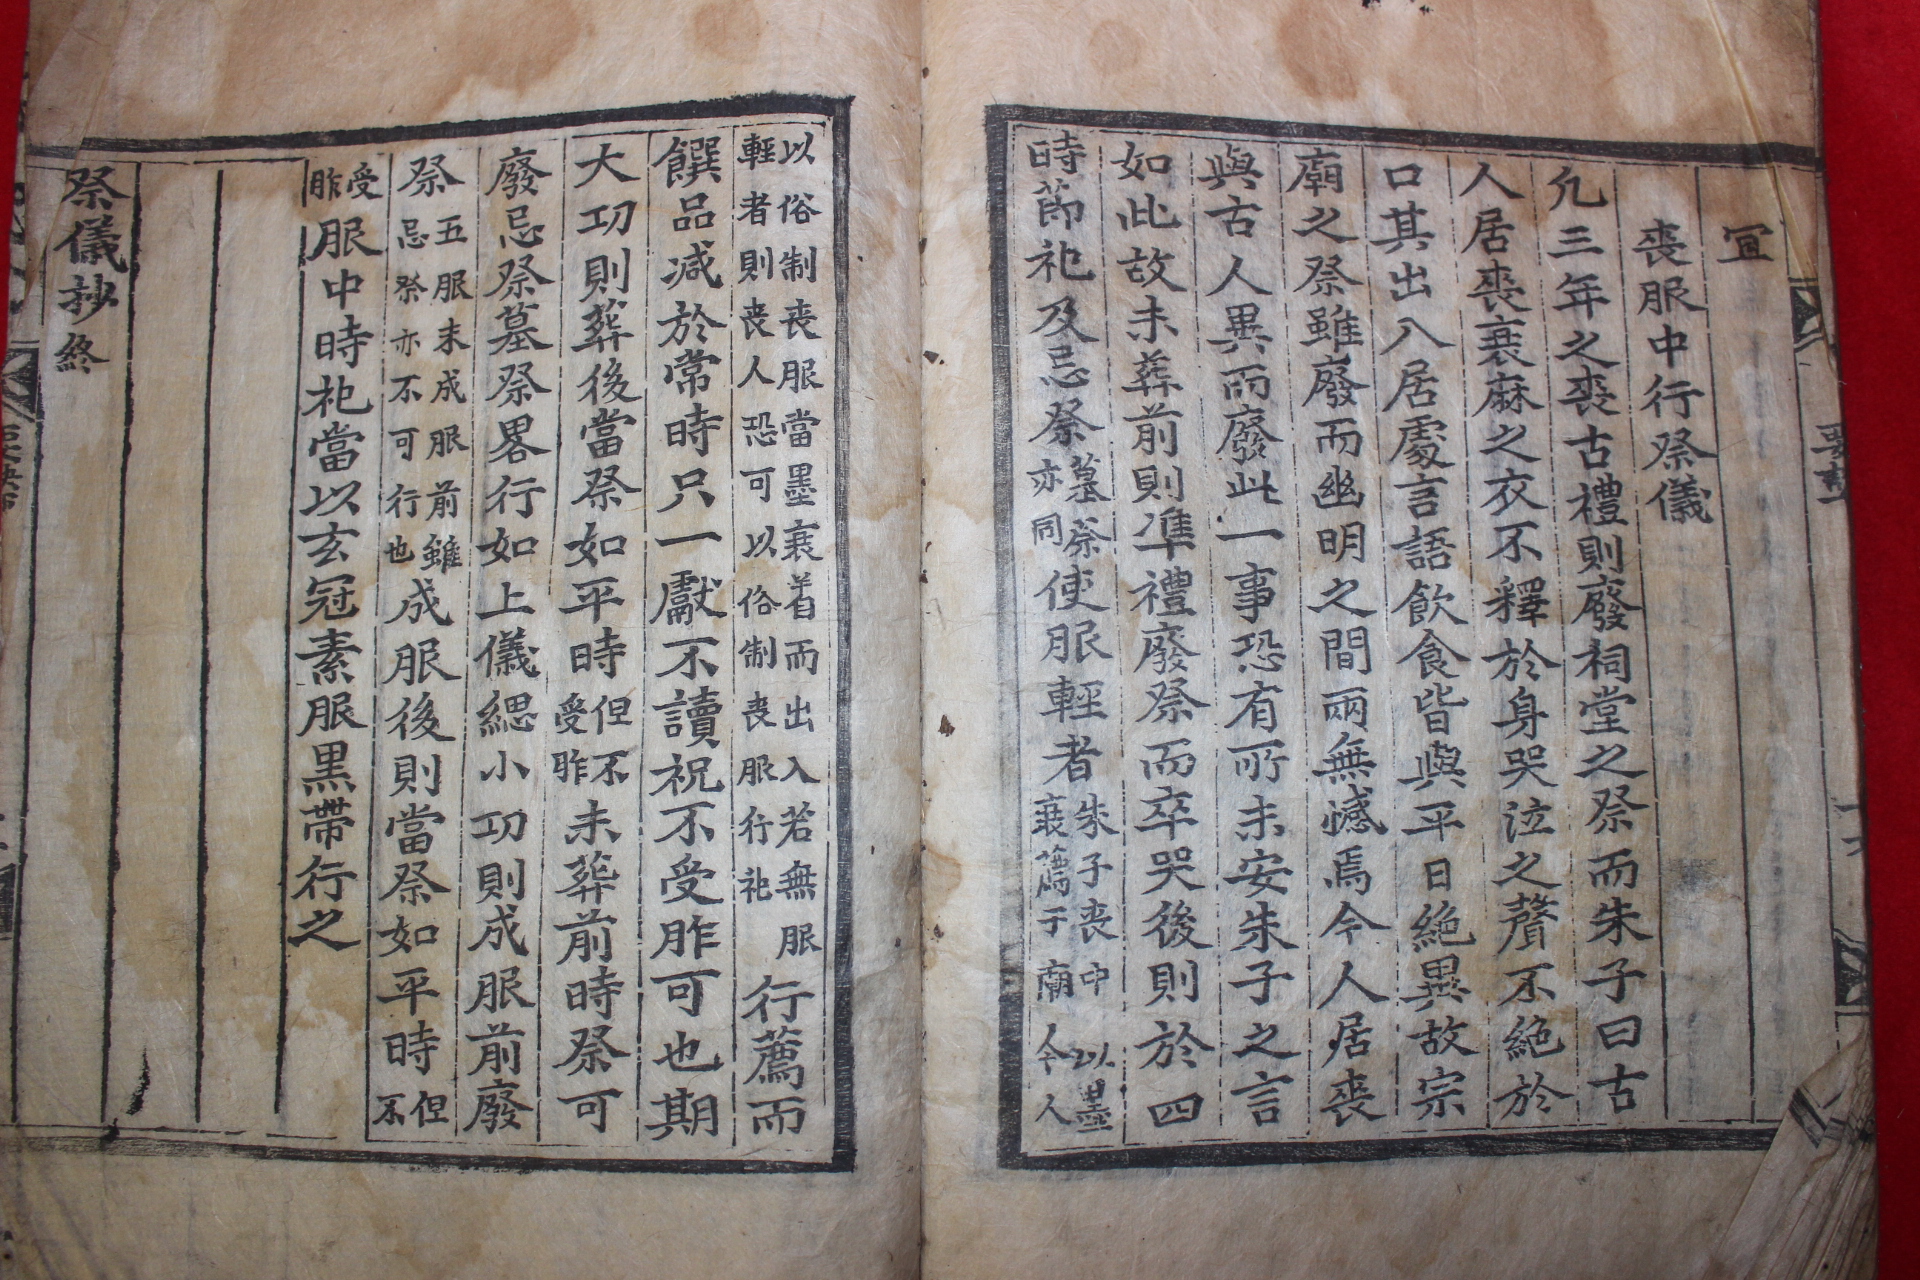 宜
喪服中行祭儀
凡三年之喪古禮則廢祠堂之祭而朱子曰古
人居喪衰麻之衣不釋於身哭泣之聲不絶於
口其出入居處言語飲食皆與平日絶異故宗
廟之祭雖廢而幽明之間兩無憾焉今人居喪
與古人異而廢此一事恐有所未安朱子之言
如此故未葬前則準禮廢祭而卒哭後則於四
時節祀及忌祭墓祭亦同使服輕者朱子喪中以墨衰薦于廟今人
以俗制喪服當墨衰着而出入若無服輕者則喪人恐可以俗制喪服行祀行薦而
饌品減於常時只一獻不讀祝不受胙可也期
大功則葬後當祭如平時但不受胙未葬前時祭可
廢忌祭墓祭畧行如上儀緦小功則成服前廢
祭五服未成服前雖忌祭亦不可行也成服後則當祭如平時但不
受胙服中時祀當以玄冠素服黒帶行之
祭儀抄終